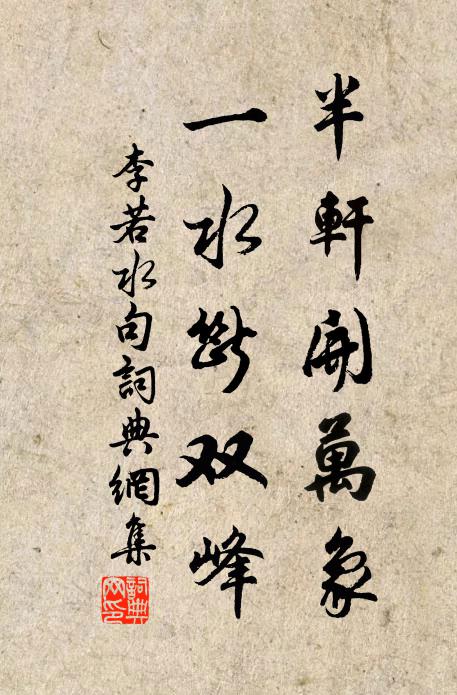 半軒開萬象
一水斷双峰
李若水句詞典網集
詞典
网印